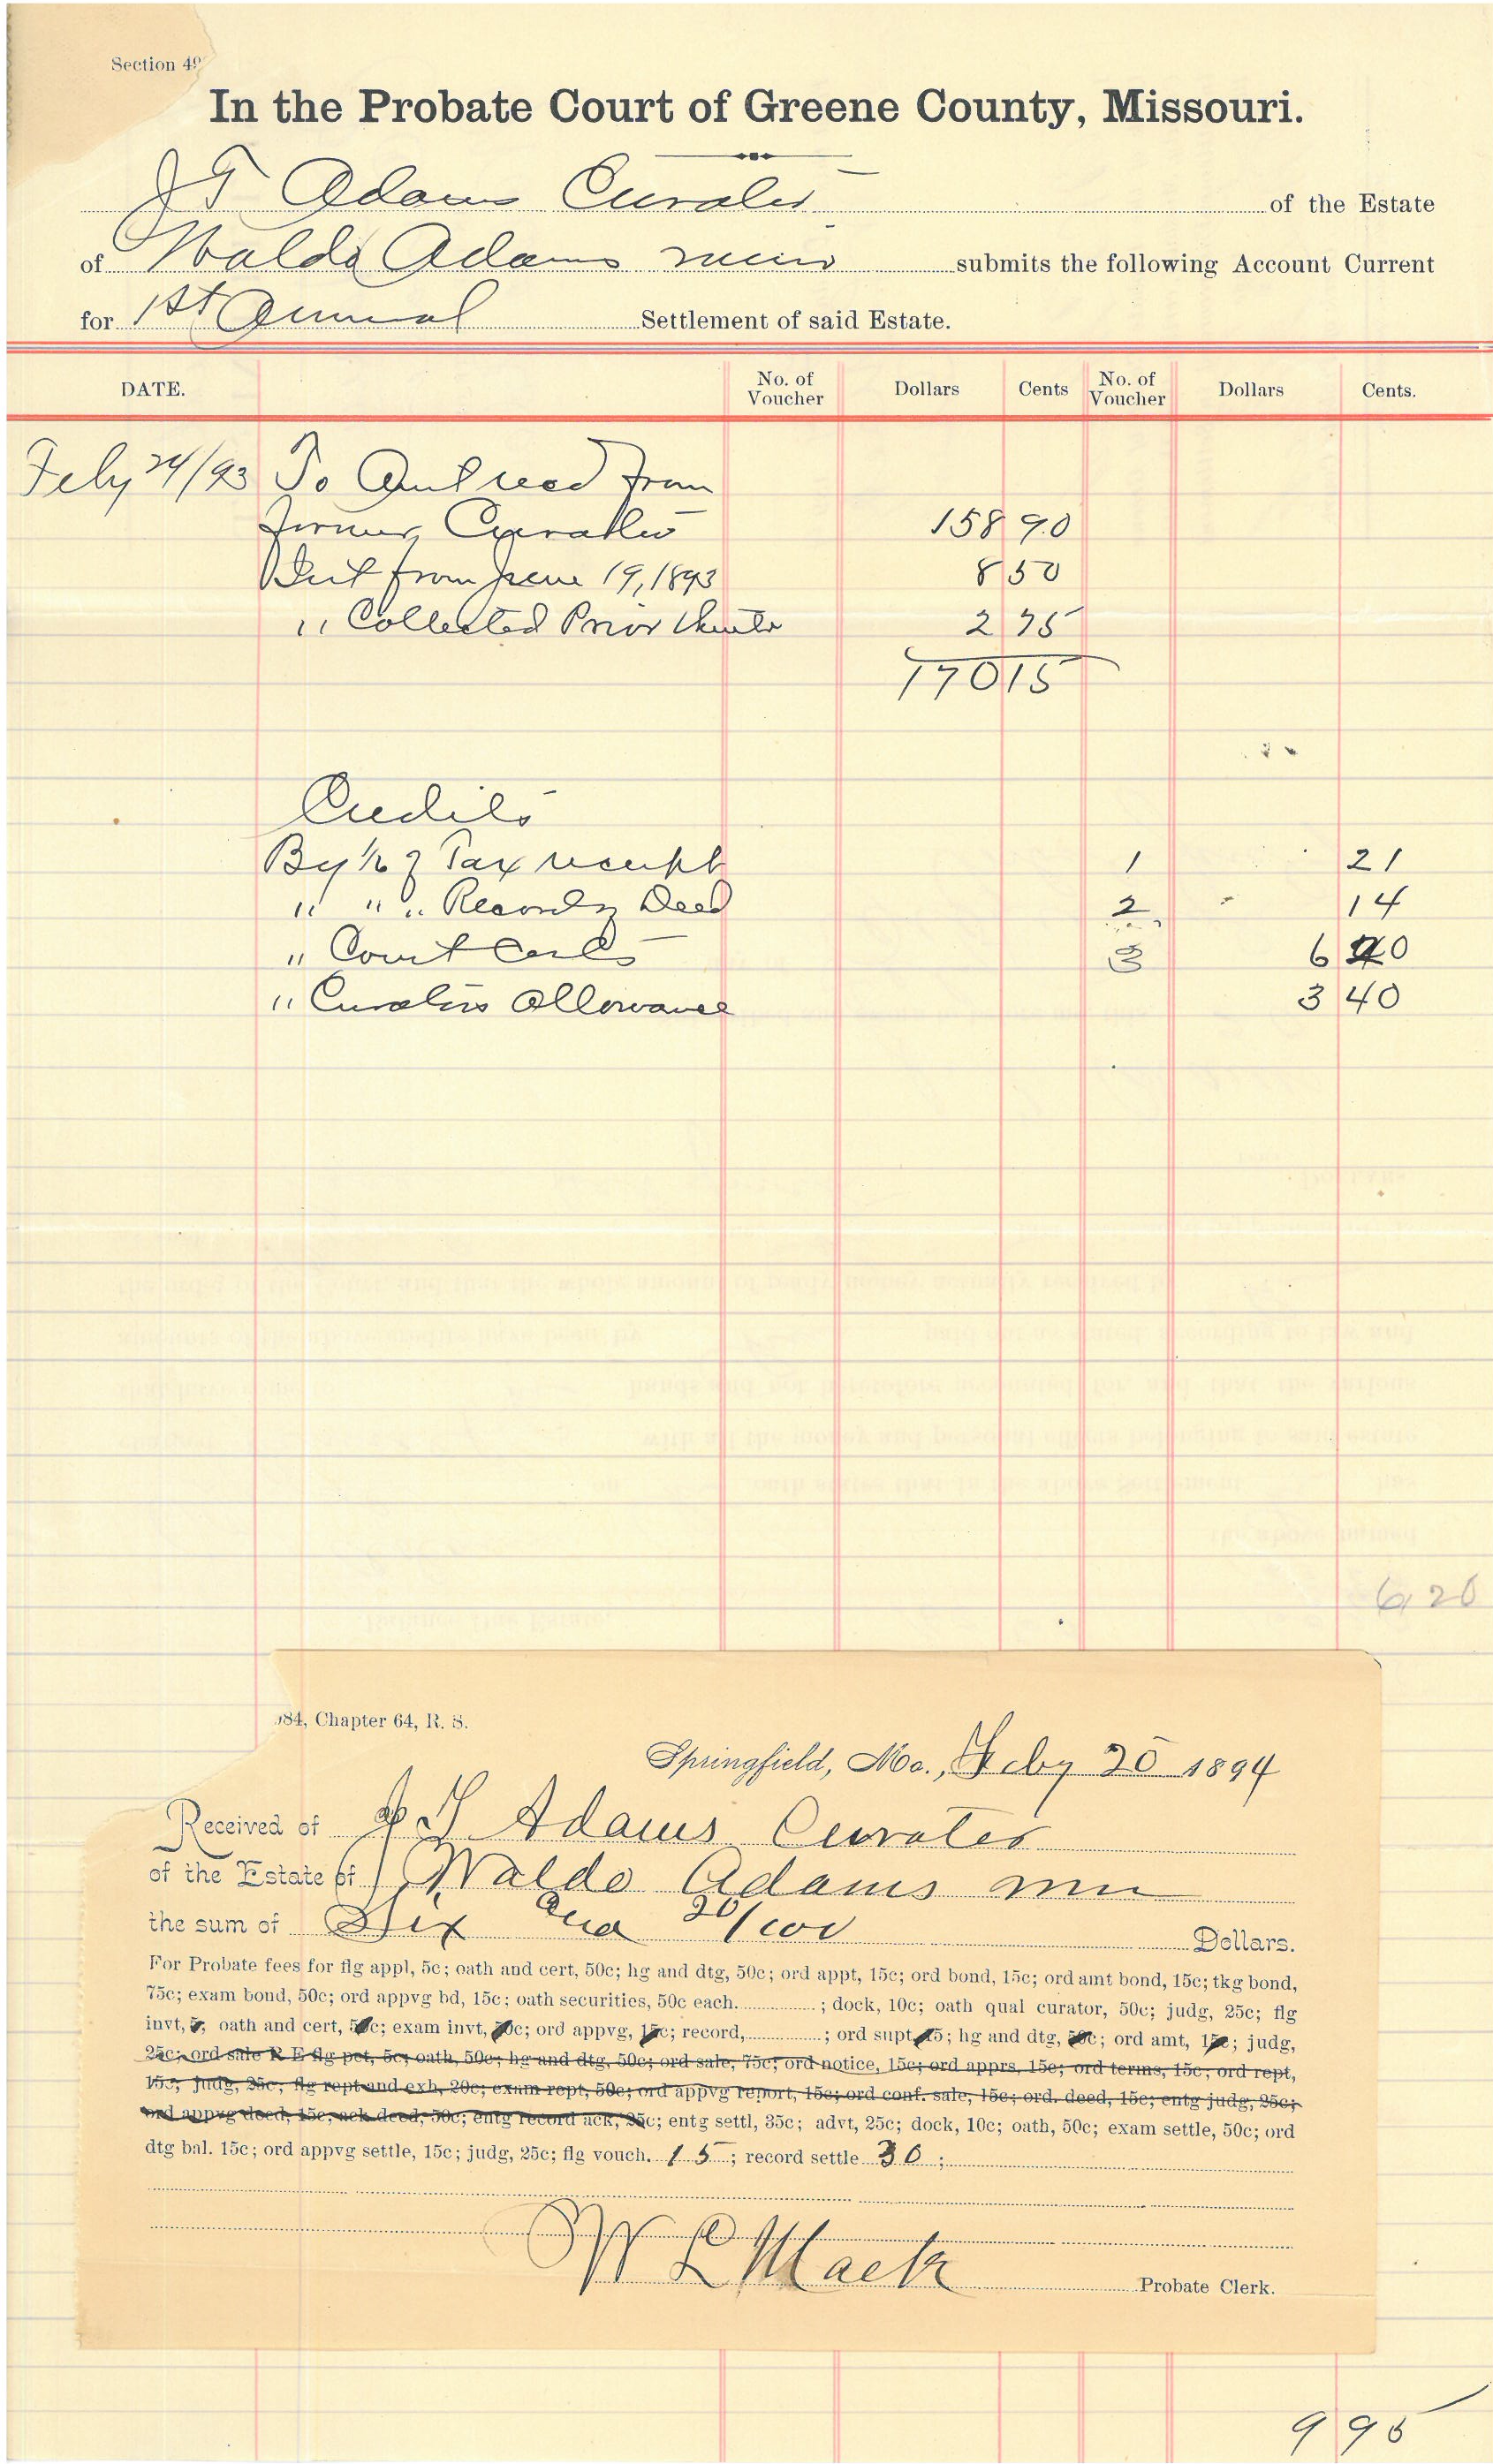 Section 49
In the Probate Court of Greene County, Missouri.
J T Adams Curator of the Estate
of Waldo Adams minor submits the following Account Current
for 1st Annual Settlement of said Estate.
DATE. No. of Voucher Dollars Cents No. of Voucher Dollars Cents.
Feby 24/93 To Amt recd from
former Curator 158 90
Int from June 19, 1893 8 50
" Collected Prior thereto 2 75
170 15
Credits
By 1/6 of Tax receipt 1 21
" " " Recording Deed 2 14
" Court Costs 3 6 20
" Curators Allowance 3 40
6,20
84, Chapter 64, R. S.
Springfield, Mo., Feby 20 1894
Received of J T Adams Curator
of the Estate of Waldo Adams min
the sum of Six and 20/100 Dollars.
For Probate fees for flg appl, 5c; oath and cert, 50c; hg and dtg, 50c; ord appt, 15c; ord bond, 15c; ord amt bond, 15c; tkg bond,
75c; exam bond, 50c; ord appvg bd, 15c; oath securities, 50c each. ; dock, 10c; oath qual curator, 50c; judg, 25c; flg
invt, 5, oath and cert, 50c; exam invt, 50c; ord appvg, 15c; record, ; ord supt, 15; hg and dtg, 50c; ord amt, 15c; judg,
25c; ord sale R E flg pet, 5c; oath, 50c; hg and dtg, 50c; ord sale, 75c; ord notice, 15c; ord apprs, 15c; ord terms, 15c; ord rept,
15c; judg, 25c; flg rept and exh, 20c; exam rept, 50c; ord appvg report, 15c; ord conf. sale, 15c; ord. deed, 15c; entg judg, 25c;
ord appvg deed, 15c; ack deed, 50c; entg record ack, 25c; entg settl, 35c; advt, 25c; dock, 10c; oath, 50c; exam settle, 50c; ord
dtg bal. 15c; ord appvg settle, 15c; judg, 25c; flg vouch. 15; record settle 30;
W L Mack Probate Clerk.
9 95